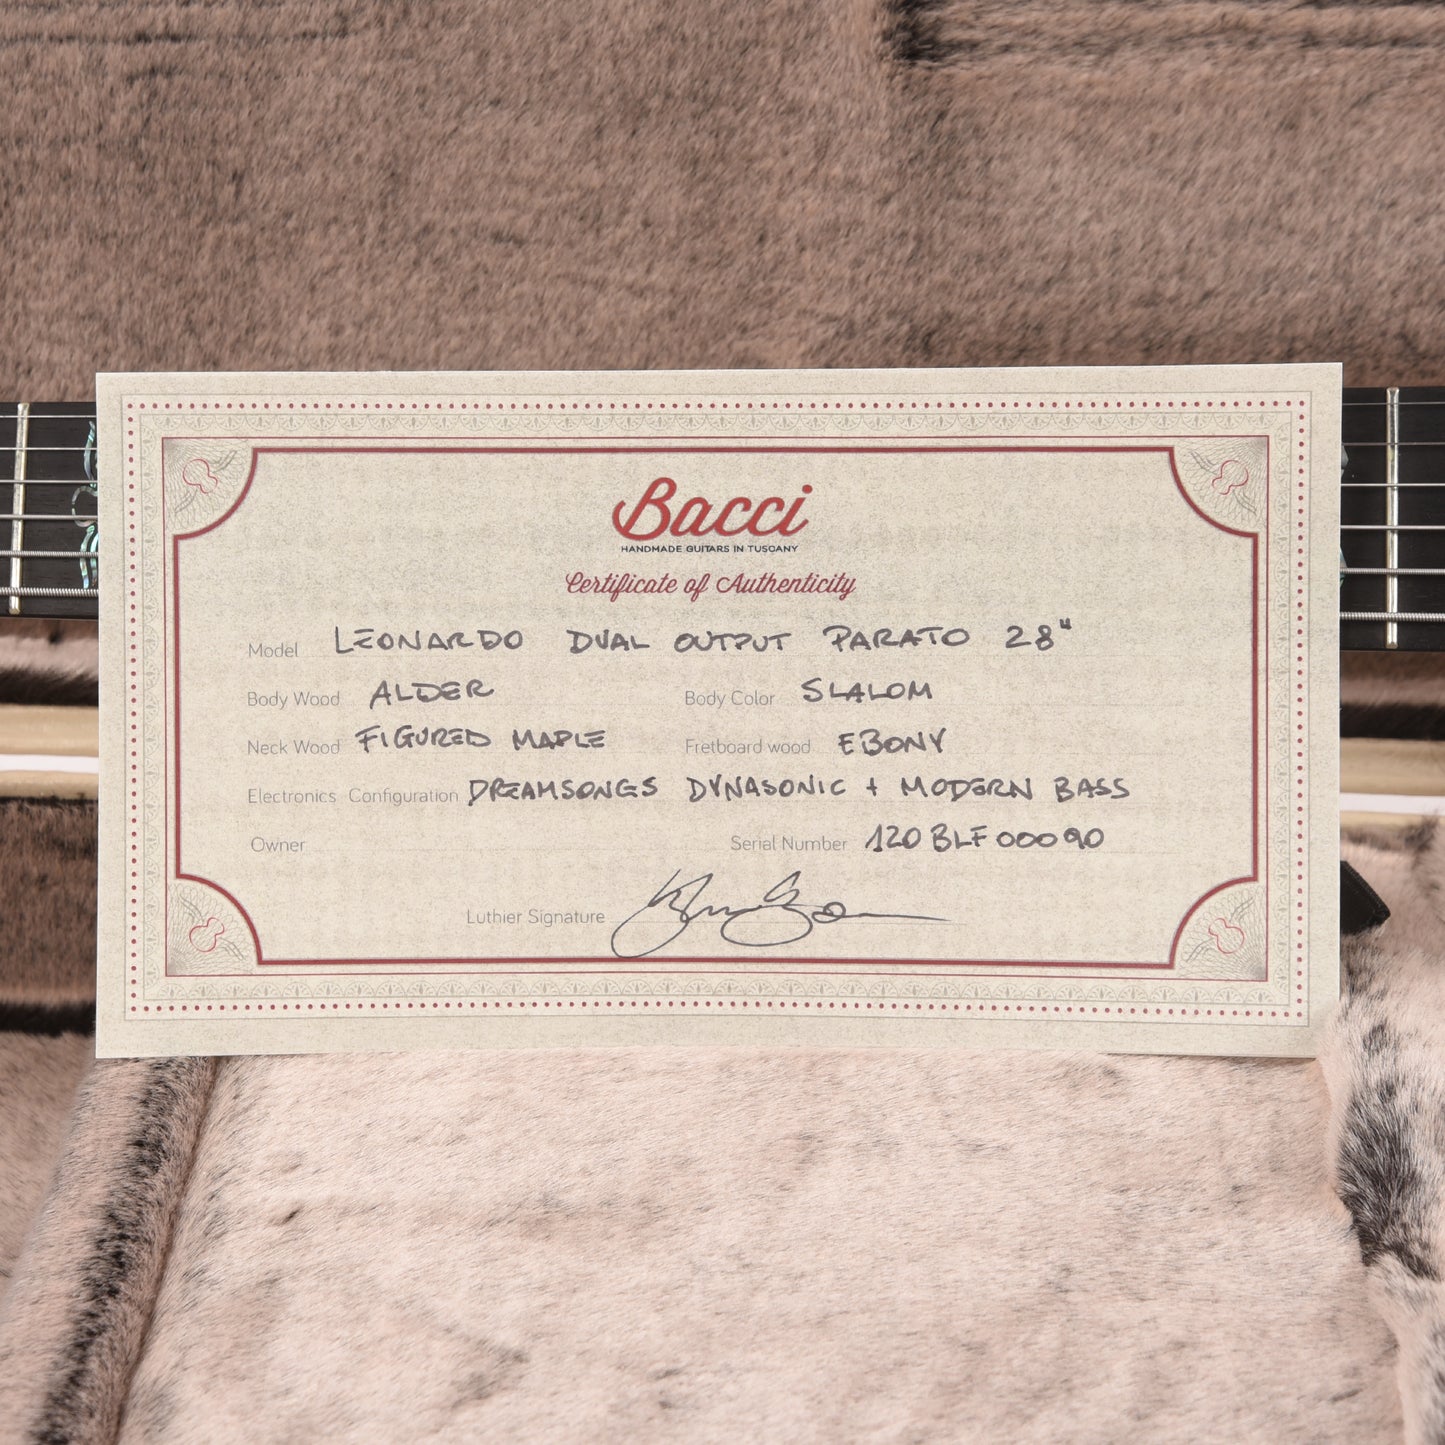 Bacci
HANDMADE GUITARS IN TUSCANY
Certificate of Authenticity
Model LEONARDO DUAL OUTPUT PARATO 28"
Body Wood ALDER Body Color SLALOM
Neck Wood FIGURED MAPLE Fretboard wood EBONY
Electronics Configuration DREAMSONGS DYNASONIC + MODERN BASS
Owner Serial Number 120BLF00090
Luthier Signature